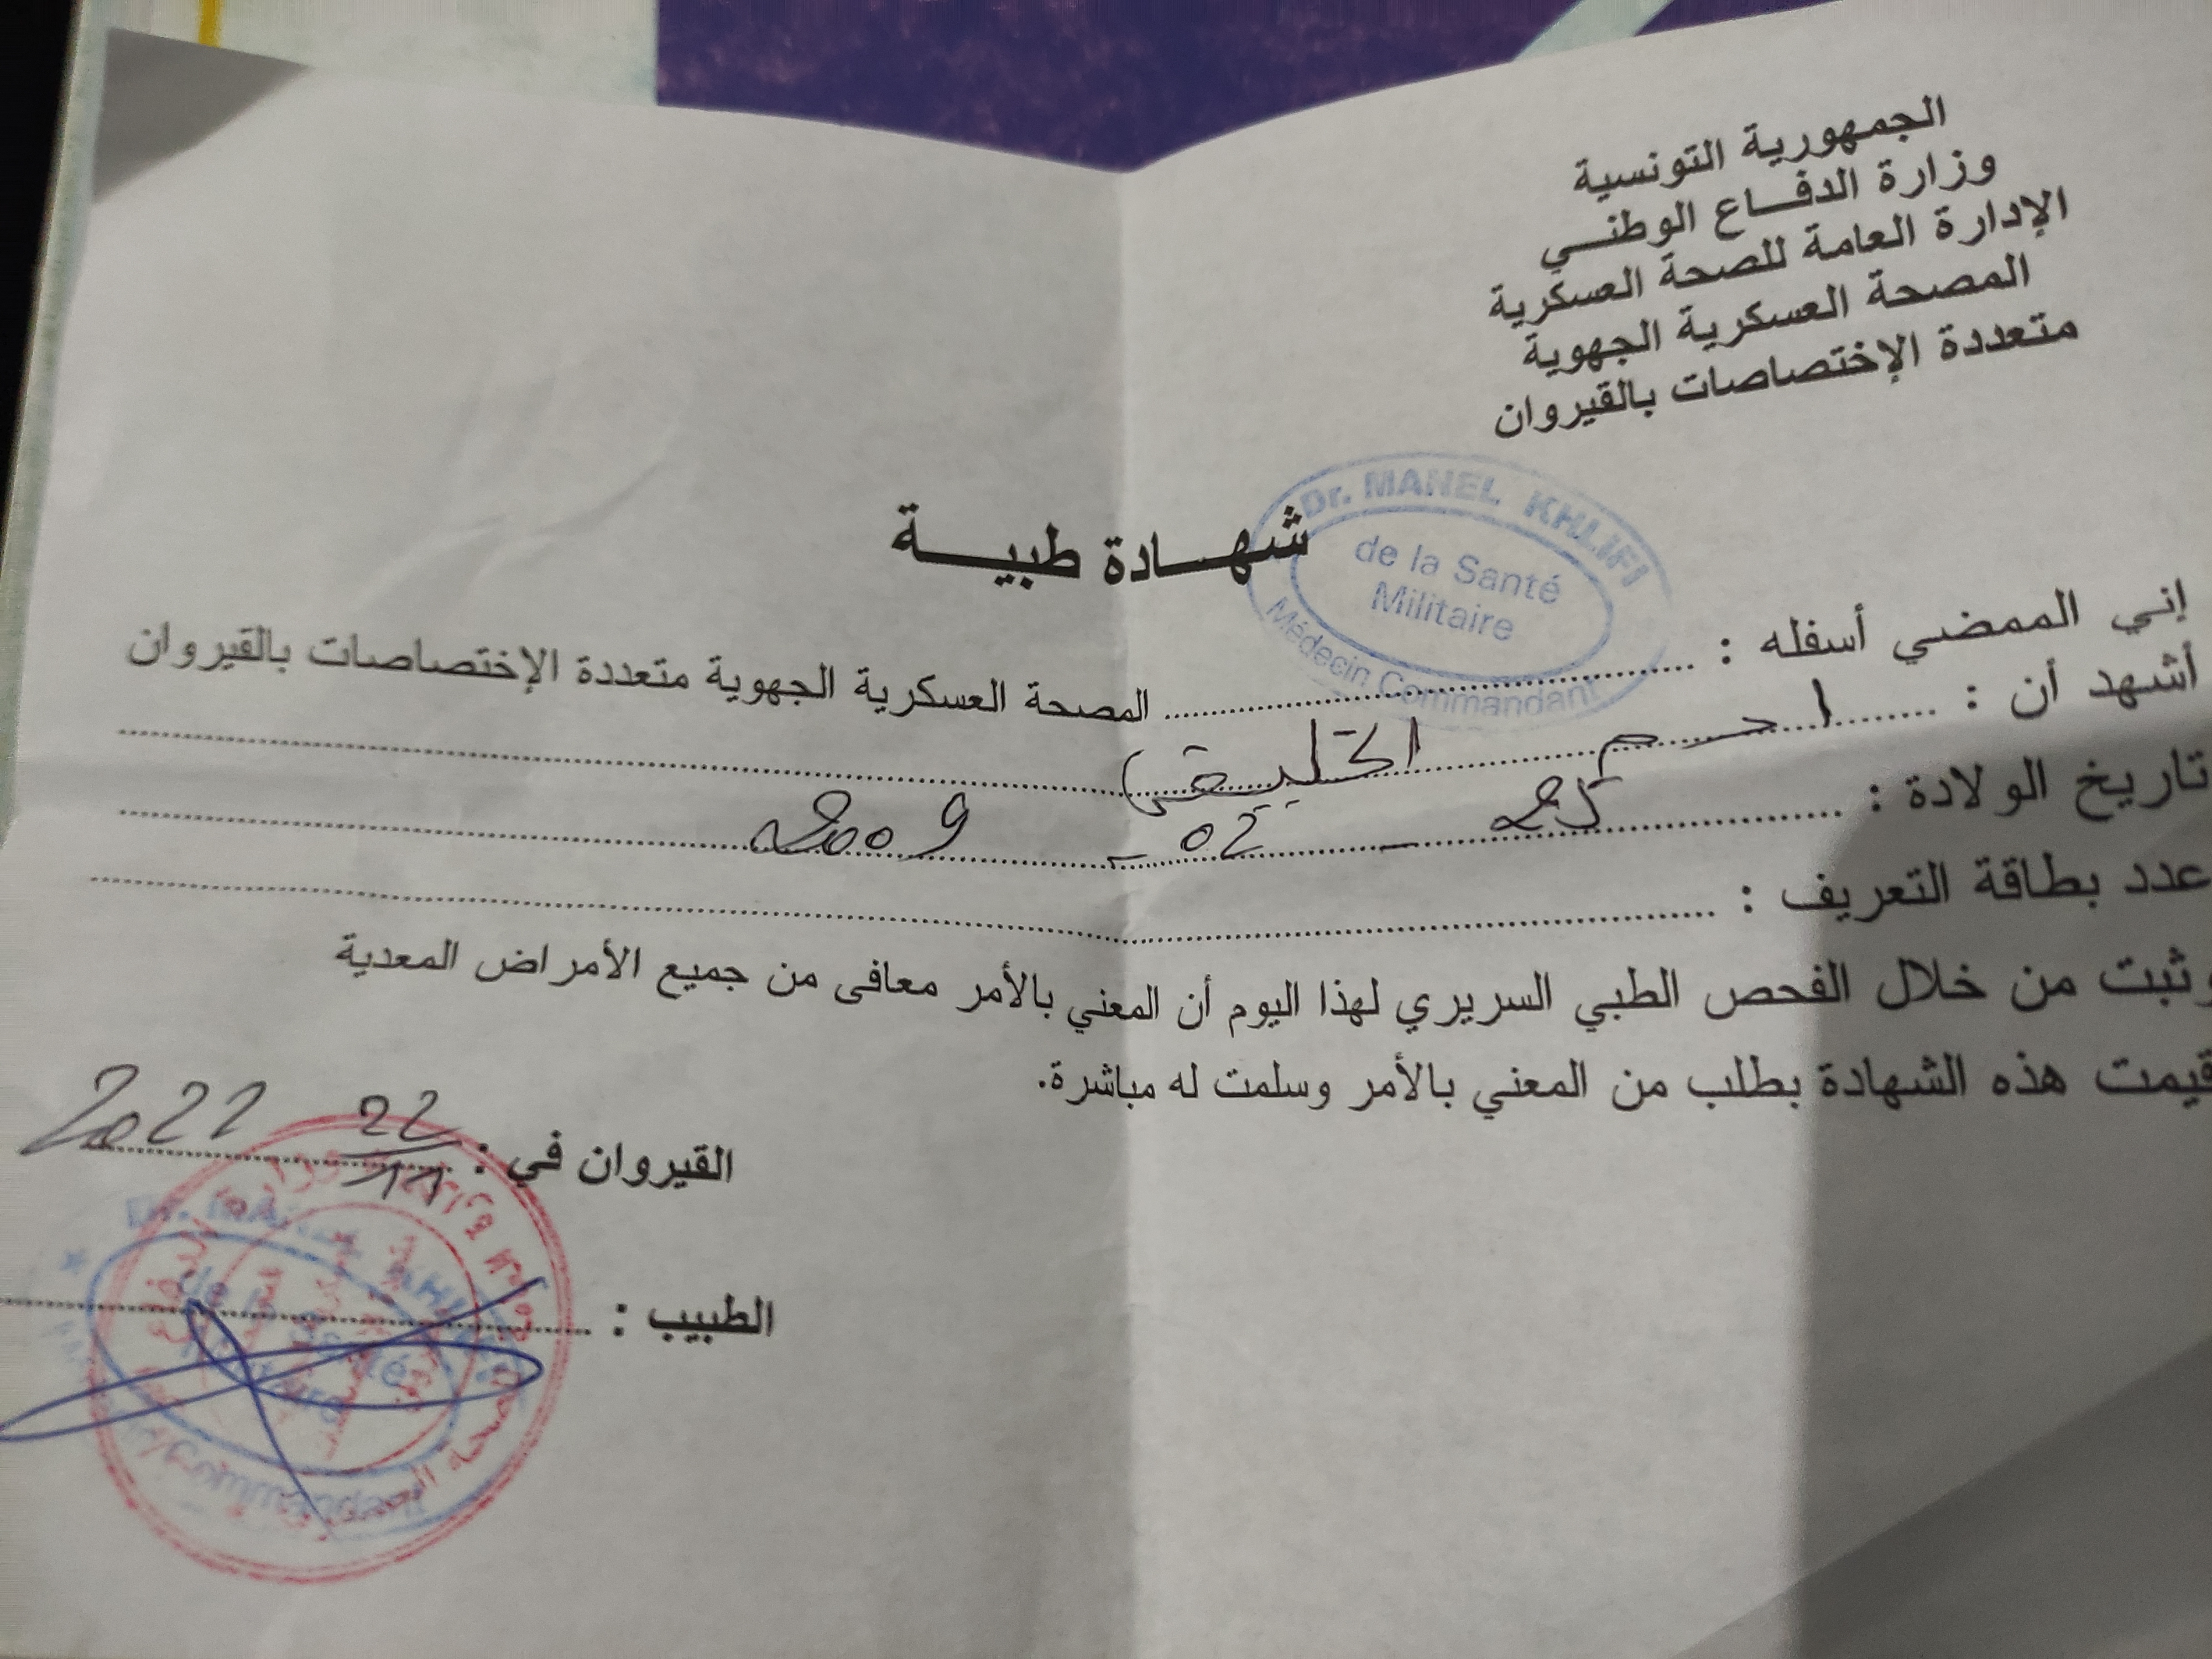 الجمهورية التونسية
وزارة الدفــاع الوطنــي
الإدارة العامة للصحة العسكرية
المصحة العسكرية الجهوية
متعددة الإختصاصات بالقيروان
شهــادة طبيــة
Dr. MANEL KHLIFI
de la Santé
Militaire
Médecin Commandant
إني الممضي أسفله : المصحة العسكرية الجهوية متعددة الإختصاصات بالقيروان
أشهد أن :
تاريخ الولادة : 25 - 02 - 2009
عدد بطاقة التعريف :
وثبت من خلال الفحص الطبي السريري لهذا اليوم أن المعني بالأمر معافى من جميع الأمراض المعدية
قيمت هذه الشهادة بطلب من المعني بالأمر وسلمت له مباشرة.
القيروان في : 22/11 2022
الطبيب :
de la Santé
Commandant